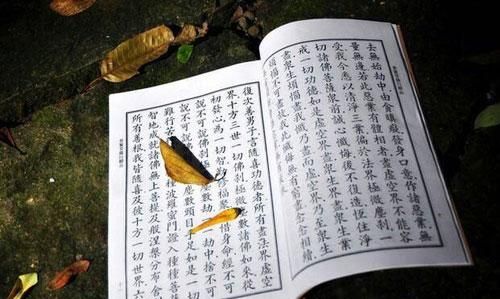 去無始劫中由貪瞋癡發身口意作諸惡業無
量無邊若此惡業有體相者盡虛空界不能容
受我今悉以清淨三業徧於法界極微塵刹一
切諸佛菩薩眾前誠心懺悔後不復造恆住淨
戒一切功德如是虛空界盡眾生界盡眾生業
盡眾生煩惱盡我懺乃盡而虛空界乃至眾生
煩惱不可盡故我此懺悔無有窮盡念念相續
復次善男子言隨喜功德者所有盡法界虛空
界十方三世一切佛刹極微塵數諸佛如來從
初發心為一切智修福聚不惜身命經不可
說不可說佛刹塵數劫一一劫中捨不可
說不可說佛刹塵數頭目手足如是一切
難行苦種波羅蜜門證入種種菩
智地成就諸佛無上菩提及般涅槃分布舍
所有善根我皆隨喜及彼十方一切世界六